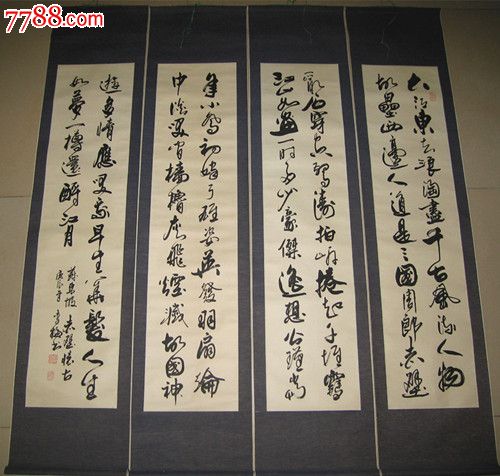 7788.com
大江東去浪淘盡千古風流人物
故壘西邊人道是三國周郎赤壁
亂石穿空驚濤拍岸捲起千堆雪
江山如畫一時多少豪傑遙想公瑾當
年小喬初嫁了雄姿英發羽扇綸
巾談笑間檣櫓灰飛煙滅故國神
遊多情應笑我早生華髮人生
如夢一樽還酹江月
蘇東坡赤壁懷古